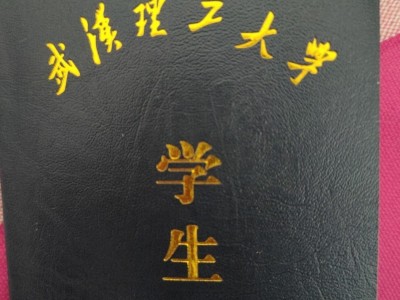 武漢理工大学
学生